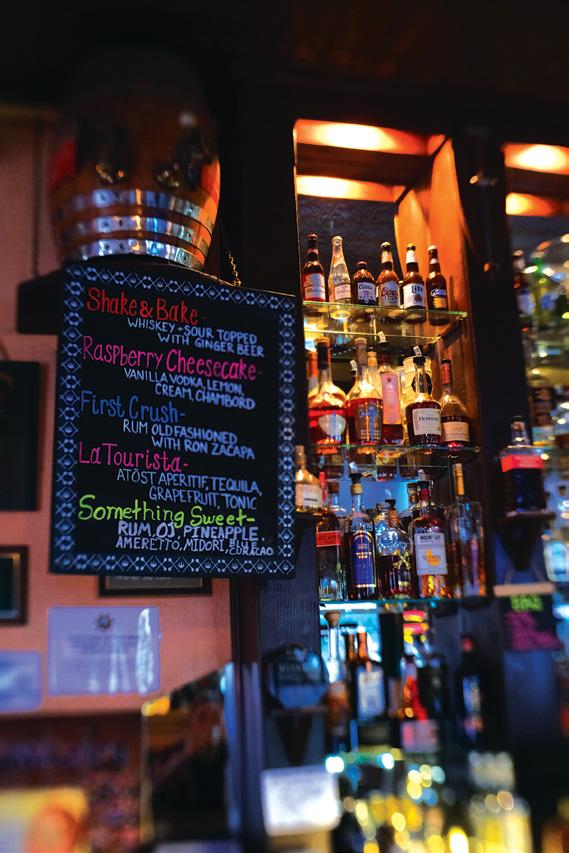 Shake & Bake-
WHISKEY + SOUR TOPPED
WITH GINGER BEER
Raspberry Cheesecake-
VANILLA VODKA, LEMON
CREAM, CHAMBORD
First Crush-
RUM OLD FASHIONED
WITH RON ZACAPA
La Tourista-
ATÖST APERITIF, TEQUILA,
GRAPEFRUIT, TONIC
Something Sweet-
RUM, OJ, PINEAPPLE
AMERETTO, MIDORI, BLUE CURACAO
Coors
Hennessy
MOUNT GAY